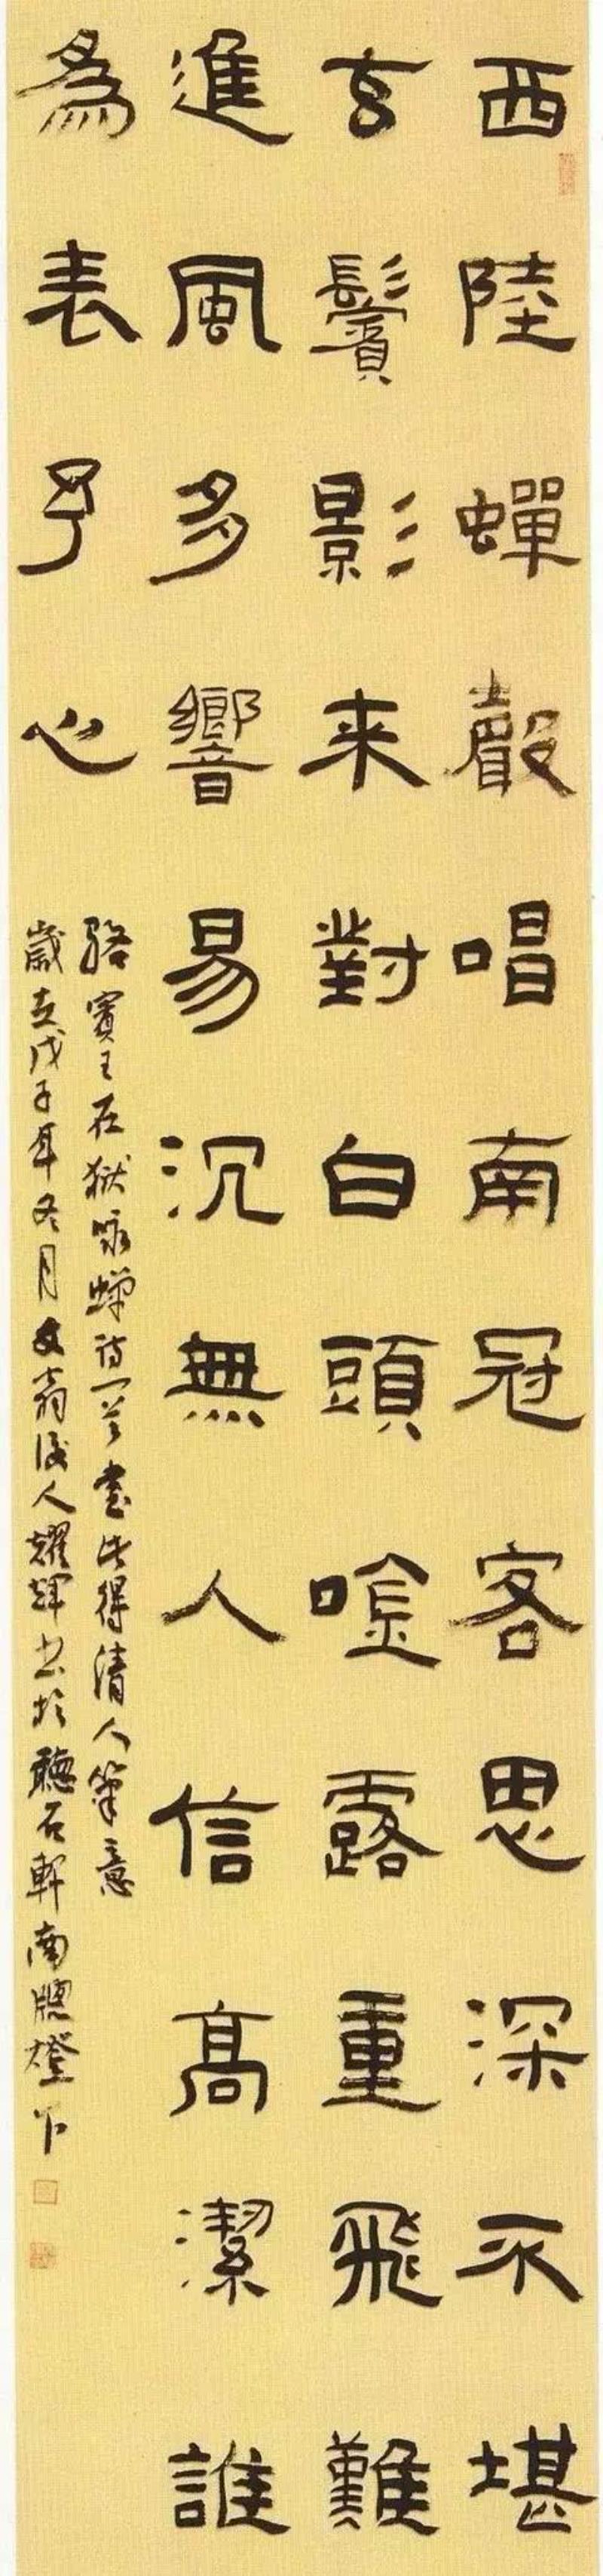 西陸蟬聲唱南冠客思深不堪
玄鬢影来對白頭唫露重飛難
進風多響易沉無人信高潔誰
為表予心
駱賓王在獄咏蟬詩一首書此得清人筆意
歲在戊子年冬月文翁後人耀輝書於聽石軒南牕燈下